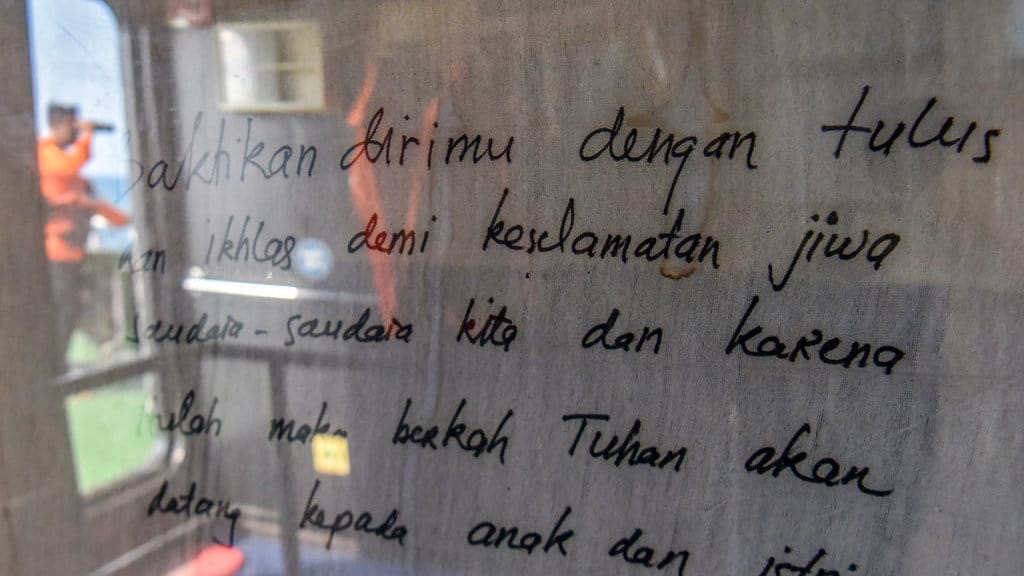 baktikan dirimu dengan tulus
dan ikhlas demi keselamatan jiwa
saudara-saudara kita dan karena
itulah maka berkah Tuhan akan
datang kepada anak dan istri